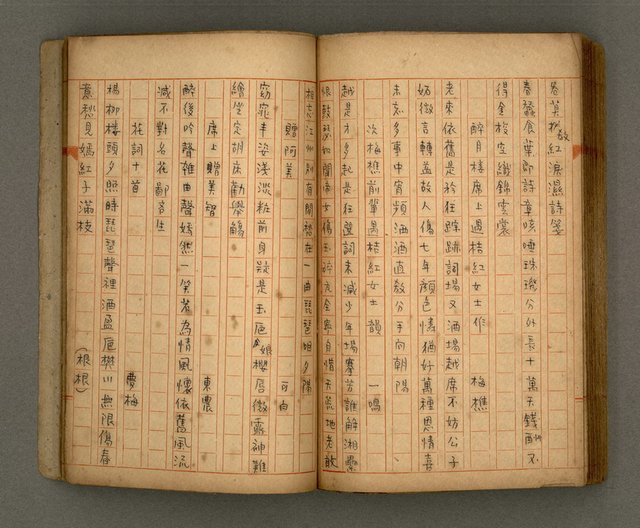 卷莫教紅淚濕詩箋
春蠶食葉郎詩章咳唾珠璣分外長十萬天錢酬不
得金梭空織錦雲裳
醉月樓席上遇桔紅女士作 梅樵
老來依舊是疏狂蹤跡詞場又酒場越席不妨公子
妬微言轉益故人傷七年顏色憐猶好萬種恩情喜
未忘多事中宵頻洒酒直教分手向朝陽
次梅樵前輩遇桔紅女士韻 一鳴
越是才多起是狂選詞未減少年場騫若誰解湘纍
恨鼓瑟如聞帝女傷玉碎完全寧自惜天荒地老敢
相忘江州別有關愁在一曲琵琶唱夕陽
贈阿美 可白
窈窕丰姿淺淡粧前身疑是玉卮娘櫻唇微露神難
繪坐定胡床勸舉觴
席上贈美智 東農
醉後吟聲雜曲聲嫣然一笑若為情風懷依舊風流
減不對名花鄙吝生
花詞十首 夢梅
楊柳樓頭夕照時琵琶聲裡酒盈卮樊川無限傷春
意愁見嫣紅子滿枝 （根根）